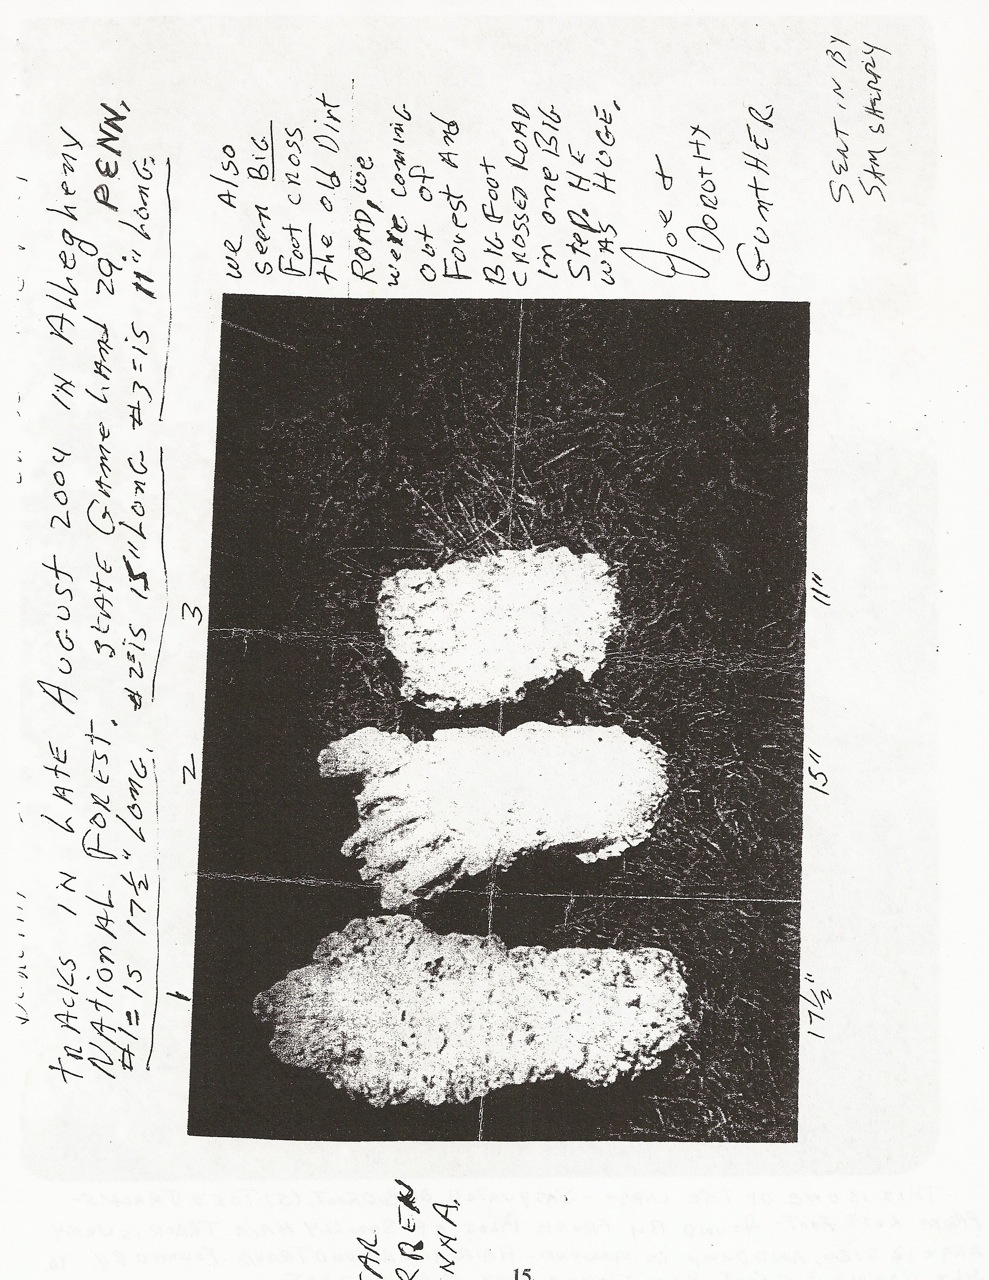 tRACKS IN LATE AUGUST 2004 IN Allegheny
NAtionAL FOREST. StATE GAme LAnd 29 PENN,
#1= IS 17½" LonG. #2=is 15" LonG #3=is 11" LonG.
1
2
3
we Also
seen Big
Foot cross
the old Dirt
ROAD, we
were coming
out of
Forest And
BIG Foot
CROSSED ROAD
in one BIG
Step. HE
WAS HUGE.
Joe &
DOROTHY
GUntHER
SENT IN BY
SAM SHERRY
17½"
15"
11"
RREN
NNA.
15